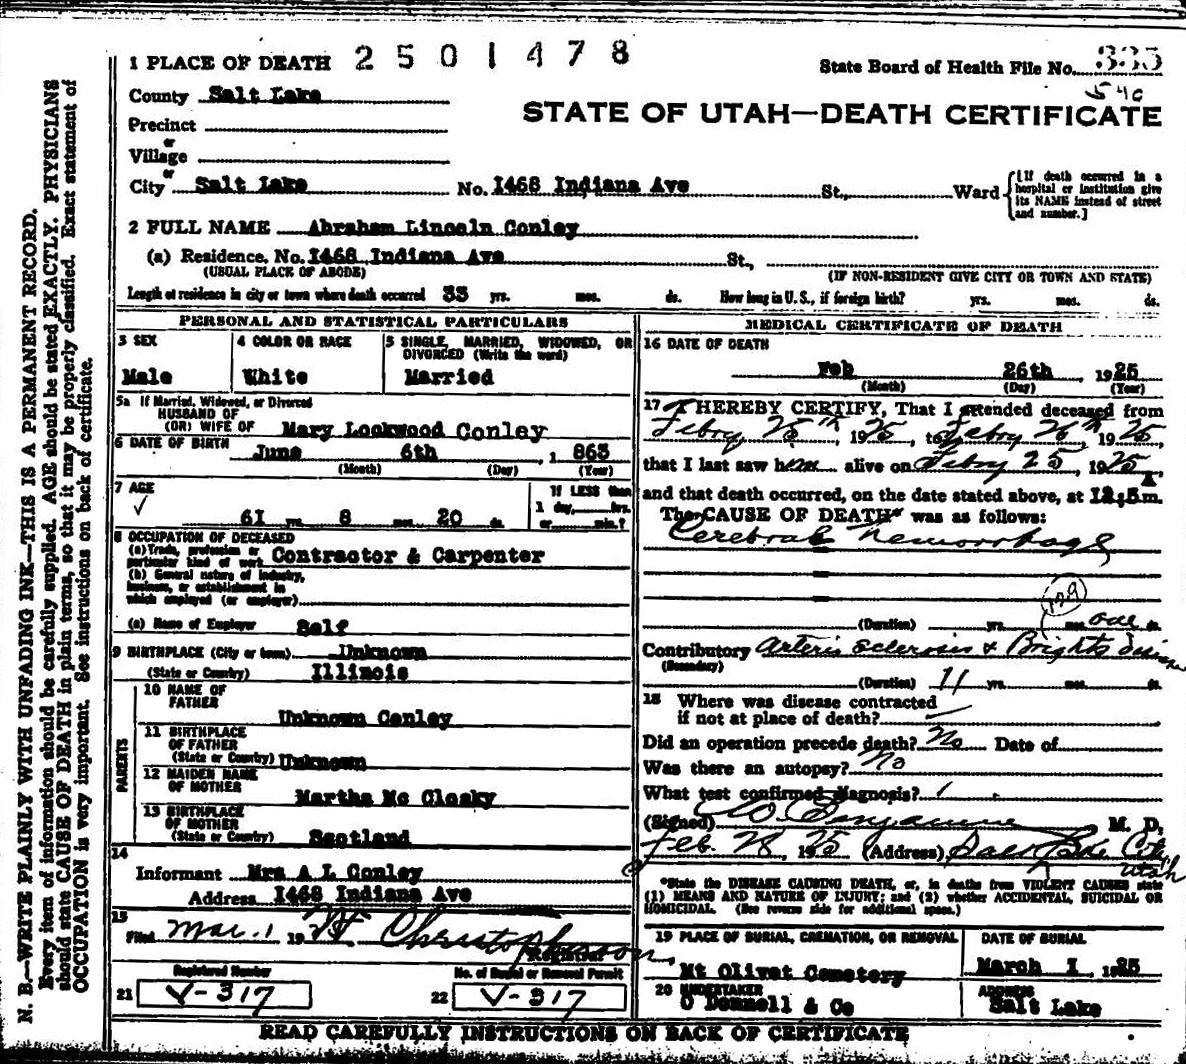 1 PLACE OF DEATH 2501478
State Board of Health File No. 335
540
County Salt Lake
STATE OF UTAH—DEATH CERTIFICATE
Precinct
or
Village
or
City Salt Lake No. 1468 Indiana Ave St., Ward
[If death occurred in a
hospital or institution give
its NAME instead of street
and number.]
2 FULL NAME Abraham Lincoln Conley
(a) Residence. No. 1468 Indiana Ave St.,
(USUAL PLACE OF ABODE) (IF NON-RESIDENT GIVE CITY OR TOWN AND STATE)
Length of residence in city or town where death occurred 33 yrs. mos. ds. How long in U. S., if foreign birth? yrs. mos. ds.
PERSONAL AND STATISTICAL PARTICULARS
3 SEX
Male
4 COLOR OR RACE
White
5 SINGLE, MARRIED, WIDOWED, OR
DIVORCED (Write the word)
Married
5a If Married, Widowed, or Divorced
HUSBAND OF
(OR) WIFE OF Mary Lockwood Conley
6 DATE OF BIRTH June 6th, 1863
(Month) (Day) (Year)
7 AGE
61 yrs. 8 mos. 20 ds.
If LESS than
1 day, hrs.
or min.?
8 OCCUPATION OF DECEASED
(a) Trade, profession or
particular kind of work Contractor & Carpenter
(b) General nature of industry,
business, or establishment in
which employed (or employer)
(c) Name of Employer Self
9 BIRTHPLACE (City or town) Unknown
(State or Country) Illinois
PARENTS
10 NAME OF
FATHER
Unknown Conley
11 BIRTHPLACE
OF FATHER
(State or Country) Unknown
12 MAIDEN NAME
OF MOTHER
Martha Mc Closky
13 BIRTHPLACE
OF MOTHER
(State or Country) Scotland
14
Informant Mrs A L Conley
Address 1468 Indiana Ave
15
Filed Mar. 1 19
Registrar
Registered Number
21 V-317
No. of Burial or Removal Permit
22 V-317
MEDICAL CERTIFICATE OF DEATH
16 DATE OF DEATH
Feb 26th, 1925
(Month) (Day) (Year)
17 I HEREBY CERTIFY, That I attended deceased from
Febry 25th, 1925, to Febry 26th, 1925,
that I last saw him alive on Febry 25, 1925,
and that death occurred, on the date stated above, at 12,5 A m.
The CAUSE OF DEATH* was as follows:
Cerebral Hemorrhage
129
(Duration) yrs. mos. one ds.
Contributory Arterio Sclerosis & Brights Disease
(Secondary)
(Duration) 11 yrs. mos. ds.
18 Where was disease contracted
if not at place of death?
Did an operation precede death? No Date of
Was there an autopsy? No
What test confirmed diagnosis?
(Signed) M. D.
Feb. 28, 1925 (Address) Salt Lake City
Utah
*State the DISEASE CAUSING DEATH, or, in deaths from VIOLENT CAUSES state
(1) MEANS AND NATURE OF INJURY; and (2) whether ACCIDENTAL, SUICIDAL OR
HOMICIDAL. (See reverse side for additional space.)
19 PLACE OF BURIAL, CREMATION, OR REMOVAL
Mt Olivet Cemetery
DATE OF BURIAL
March 1, 1925
20 UNDERTAKER
O Donnell & Co
ADDRESS
Salt Lake
READ CAREFULLY INSTRUCTIONS ON BACK OF CERTIFICATE
N. B.—WRITE PLAINLY WITH UNFADING INK—THIS IS A PERMANENT RECORD.
Every item of information should be carefully supplied. AGE should be stated EXACTLY. PHYSICIANS
should state CAUSE OF DEATH in plain terms, so that it may be properly classified. Exact statement of
OCCUPATION is very important. See instructions on back of certificate.